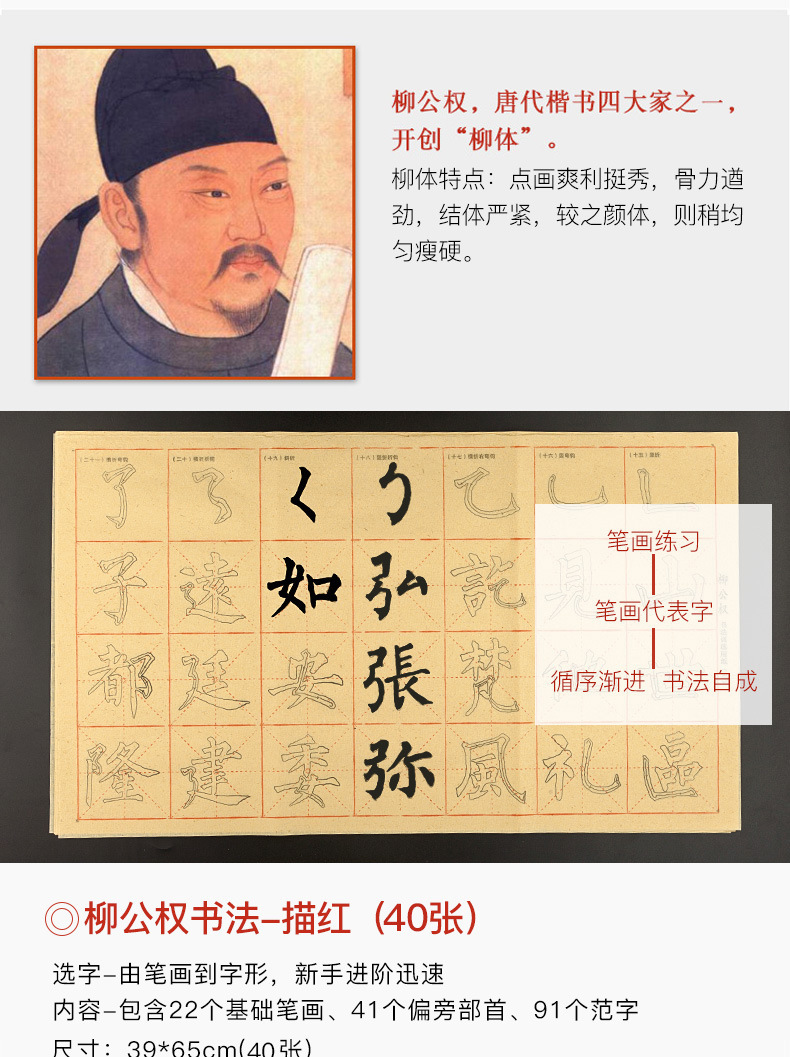 柳公权，唐代楷书四大家之一，
开创“柳体”。
柳体特点：点画爽利挺秀，骨力遒
劲，结体严紧，较之颜体，则稍均
匀瘦硬。
了 ㇋ く 勹 乙 乚 ㇗
子 遠 如 弘 訖 見 山
都 廷 安 張 梵
隆 建 委 弥 風 礼 區
笔画练习
笔画代表字
循序渐进 书法自成
◎柳公权书法-描红（40张）
选字-由笔画到字形，新手进阶迅速
内容-包含22个基础笔画、41个偏旁部首、91个范字
尺寸：39*65cm(40张)